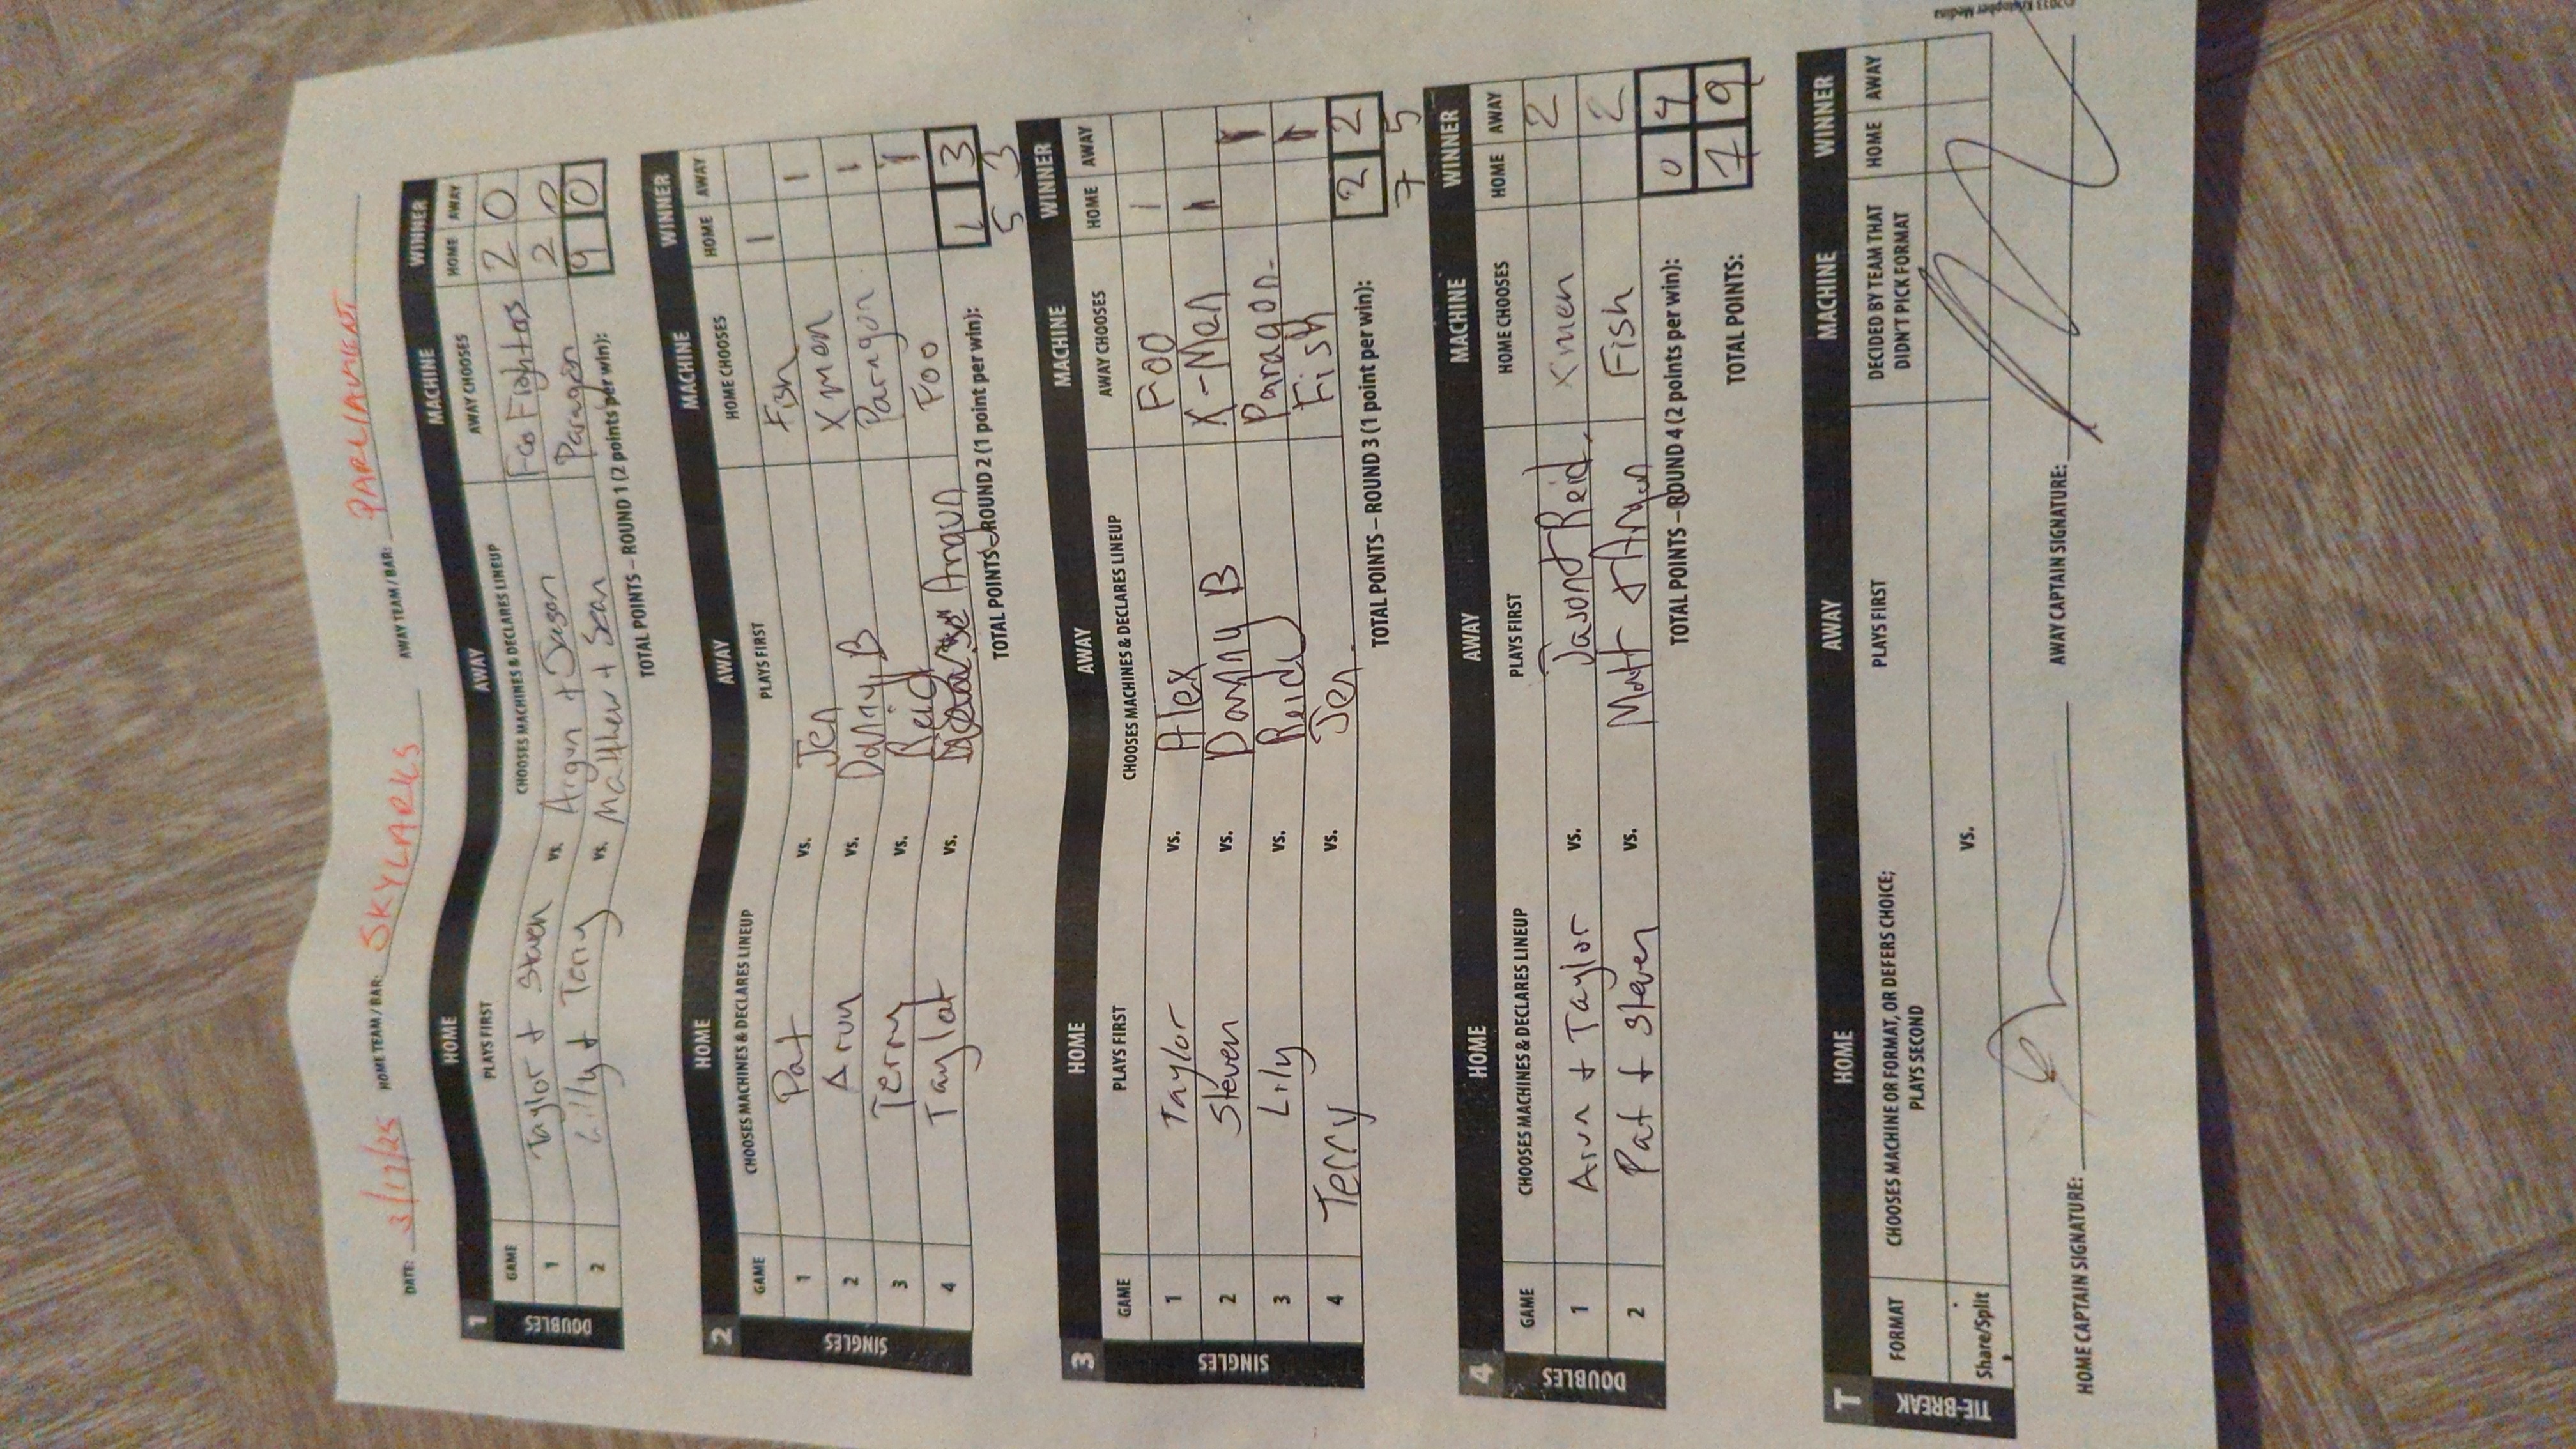 DATE: 3/17/25 HOME TEAM / BAR: SKYLARKS AWAY TEAM / BAR: PARLIAMENT
1 HOME AWAY MACHINE WINNER
GAME PLAYS FIRST CHOOSES MACHINES & DECLARES LINEUP AWAY CHOOSES HOME AWAY
DOUBLES
1 Taylor + Steven vs. Argun + Jason Foo Fighters 2 0
2 Lilly + Terry vs. Matthew + Sean Paragon 2 0
TOTAL POINTS – ROUND 1 (2 points per win): 0
2 HOME AWAY MACHINE WINNER
GAME CHOOSES MACHINES & DECLARES LINEUP PLAYS FIRST HOME CHOOSES HOME AWAY
SINGLES
1 Pat vs. Jen Fish 1
2 Arun vs. Danny B Xmen 1
3 Terry vs. Reid Paragon 1
4 Taylor vs. Argun Foo 1
TOTAL POINTS – ROUND 2 (1 point per win): 1 3
5 3
3 HOME AWAY MACHINE WINNER
GAME PLAYS FIRST CHOOSES MACHINES & DECLARES LINEUP AWAY CHOOSES HOME AWAY
SINGLES
1 Taylor vs. Alex Foo 1
2 Steven vs. Danny B X-Men 1
3 Lily vs. Reid Paragon 1
4 Terry vs. Jen Fish 1
TOTAL POINTS – ROUND 3 (1 point per win): 2 2
7 5
4 HOME AWAY MACHINE WINNER
GAME CHOOSES MACHINES & DECLARES LINEUP PLAYS FIRST HOME CHOOSES HOME AWAY
DOUBLES
1 Arun + Taylor vs. Jason + Reid Xmen 2
2 Pat + Steven vs. Matt + Argun Fish 2
TOTAL POINTS – ROUND 4 (2 points per win): 0 4
TOTAL POINTS: 7 9
T HOME AWAY MACHINE WINNER
TIE-BREAK
FORMAT CHOOSES MACHINE OR FORMAT, OR DEFERS CHOICE; PLAYS SECOND PLAYS FIRST DECIDED BY TEAM THAT DIDN'T PICK FORMAT HOME AWAY
Share/Split vs.
HOME CAPTAIN SIGNATURE: AWAY CAPTAIN SIGNATURE:
©2011 Kristopher Medina